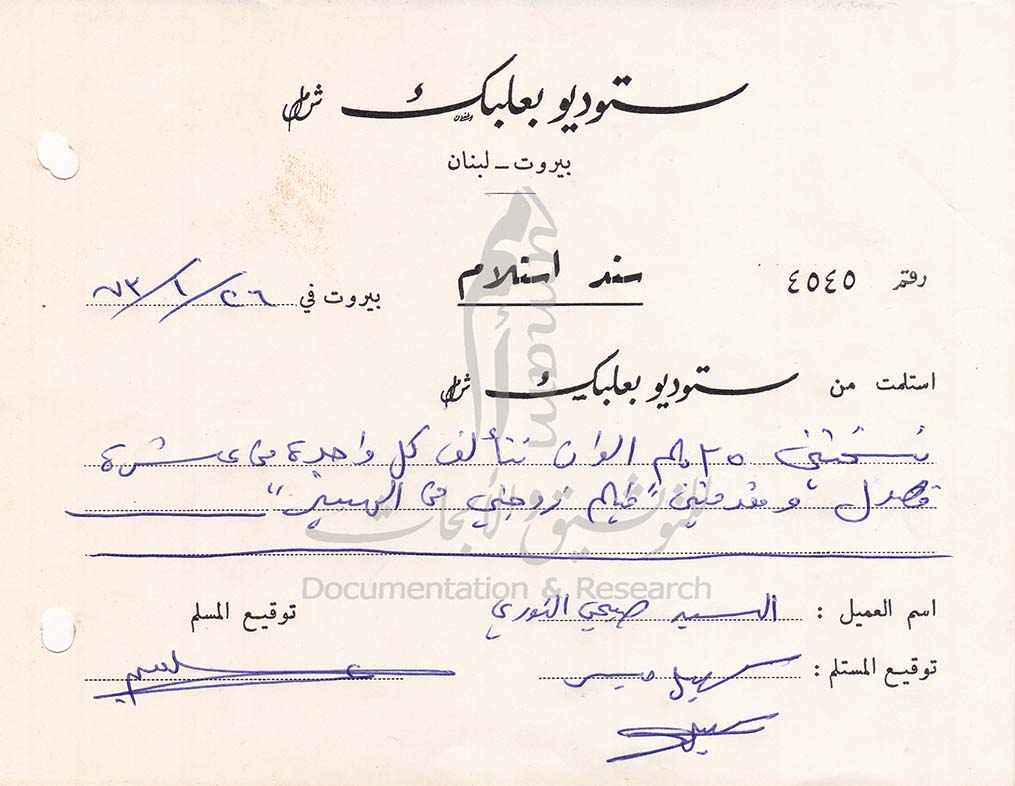 ستوديو بعلبك ش.م.ل
بيروت - لبنان
رقم ٤٥٤٥
سند استلام
بيروت في ٢٦ / ١ / ٧٣
استلمت من ستوديو بعلبك ش.م.ل
نسختين ٣٥ ملم الوان تتألف كل واحدة من عشرة
فصول ومقدمتين "فيلم زوجتي من الهيبز"
اسم العميل : السيد صبحي النوري
توقيع المسلم
توقيع المستلم : سهيل
umam
للتوثيق والأبحاث
Documentation & Research